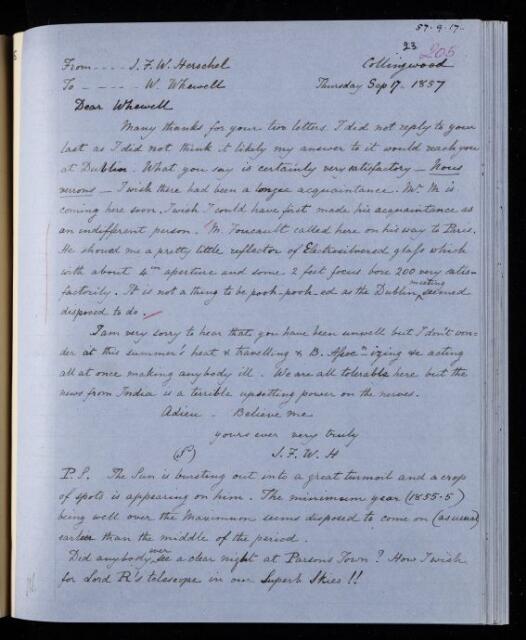 57.9.17.
23 205
From - - - - J. F. W. Herschel Collingwood
To - - - - - W. Whewell Thursday Sep 17. 1857
Dear Whewell
Many thanks for your two letters. I did not reply to your
last as I did not think it likely my answer to it would reach you
at Dublin. What you say is certainly very satisfactory — Nous
verrons — I wish there had been a longer acquaintance. Mr M is
coming here soon. I wish I could have first made his acquaintance as
an indifferent person. M. Foucault called here on his way to Paris.
He showed me a pretty little reflector of Electrosilvered glass which
with about 4 in aperture and some 2 feet focus bore 200 very satis-
factorily. It is not a thing to be pooh-pooh-ed as the Dublin meeting seemed
disposed to do.
I am very sorry to hear that you have been unwell but I don't won-
der at this summer's heat & travelling & B. Assocn izing &c acting
all at once making anybody ill. We are all tolerable here but the
news from India is a terrible upsetting power on the nerves.
Adieu. Believe me
yours ever very truly
(S) J. F. W. H
P.S. The Sun is bursting out into a great turmoil and a crop
of spots is appearing on him. The minimum year (1855.5)
being well over the Maximum seems disposed to come on (as usual)
earlier than the middle of the period.
Did anybody ever see a clear night at Parsons Town? How I wish
for Lord R's telescope in our Superb Skies!!